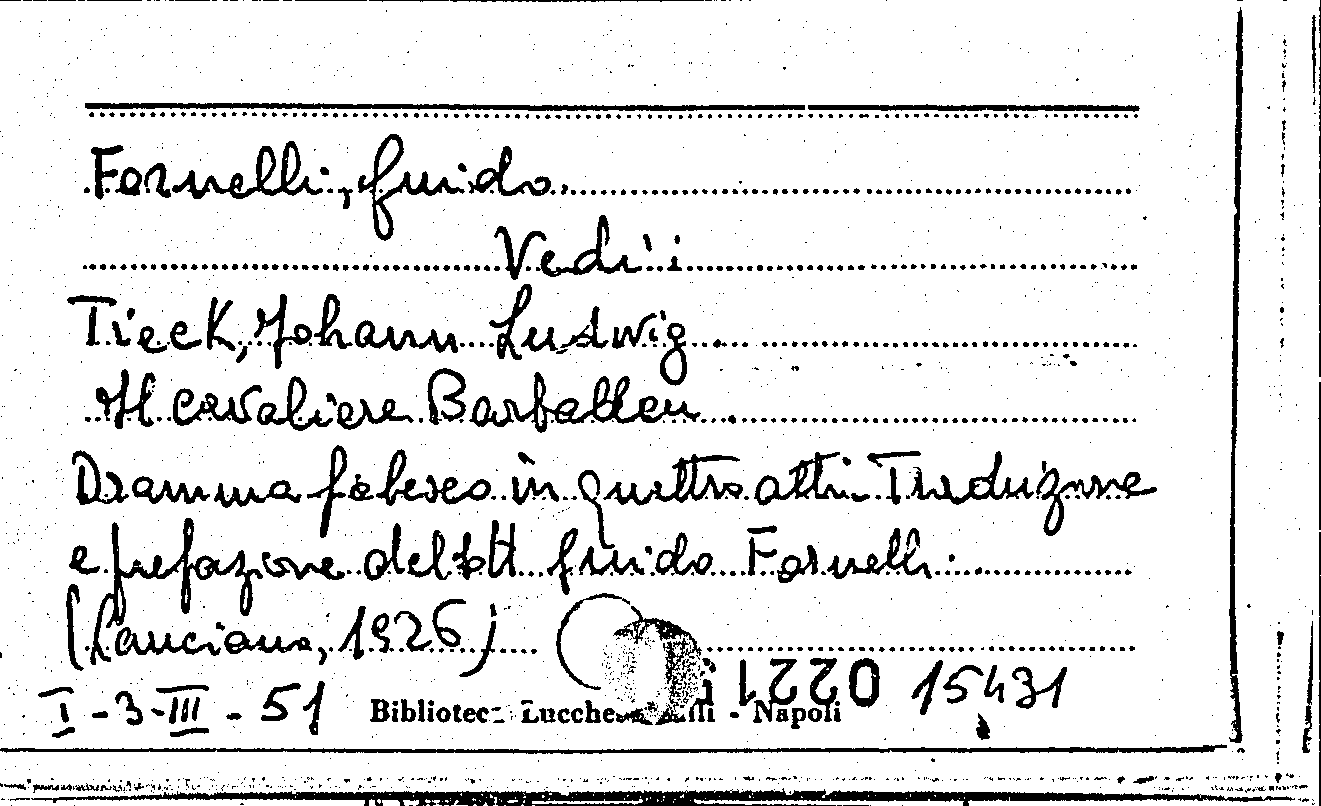 Fornelli, Guido.
Vedi:
Tieck, Johann Ludwig
Il cavaliere Barbableu
Dramma fiabesco in quattro atti. Traduzione
e prefazione del dott Guido Fornelli.
(Lanciano, 1926)
I-3-III-51 Biblioteca Lucchesi Palli - Napoli 15431